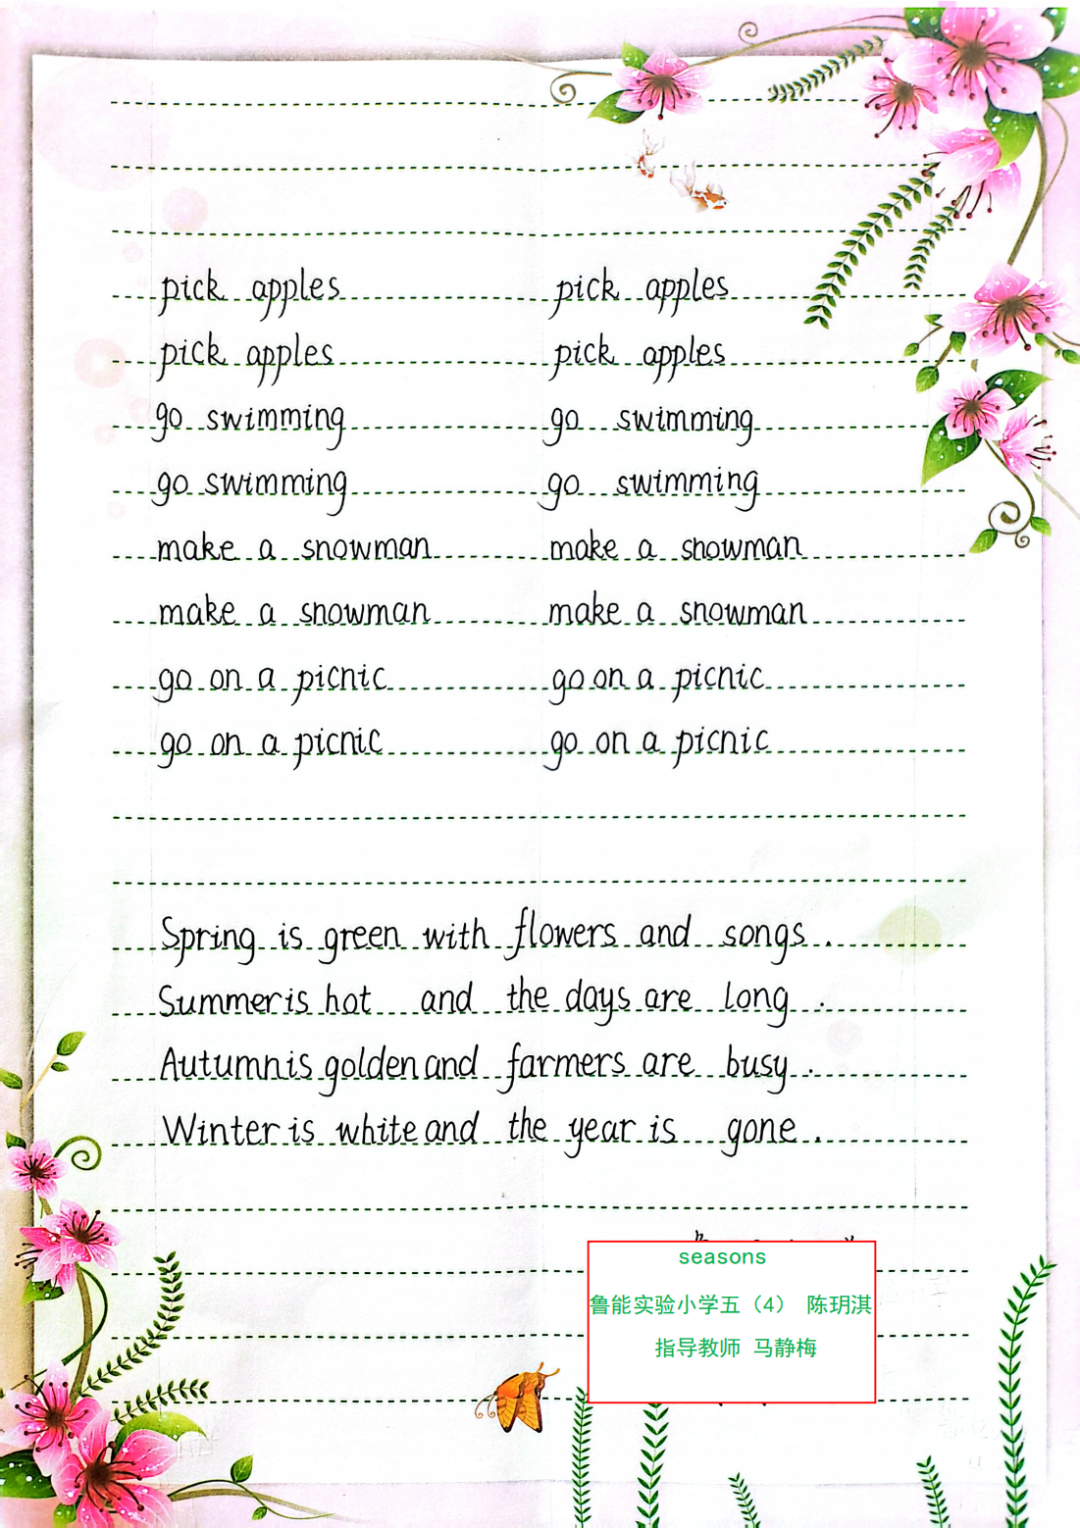 pick apples pick apples
pick apples pick apples
go swimming go swimming
go swimming go swimming
make a snowman make a snowman
make a snowman make a snowman
go on a picnic go on a picnic
go on a picnic go on a picnic
Spring is green with flowers and songs.
Summer is hot and the days are long.
Autumn is golden and farmers are busy.
Winter is white and the year is gone.
seasons
鲁能实验小学五（4） 陈玥淇
指导教师 马静梅